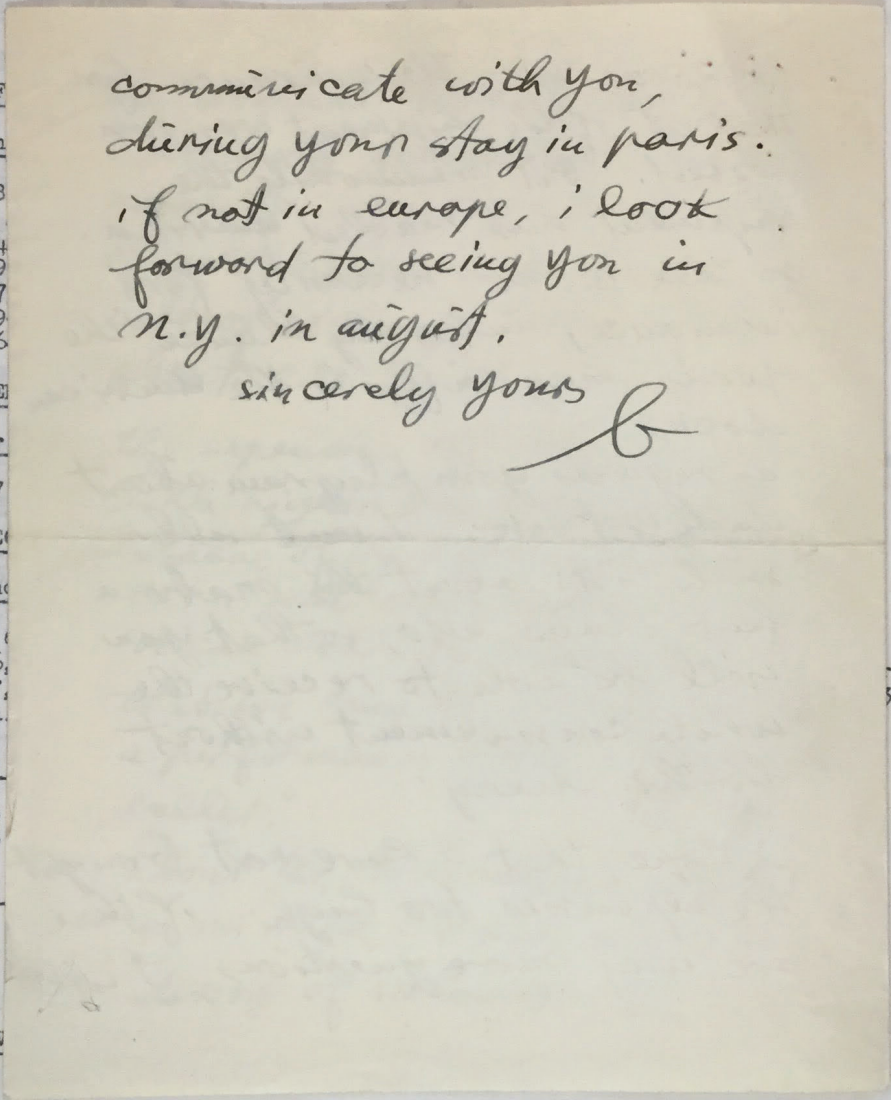 communicate with you,
during your stay in paris.
if not in europe, i look
forward to seeing you in
n.y. in august.
sincerely yours